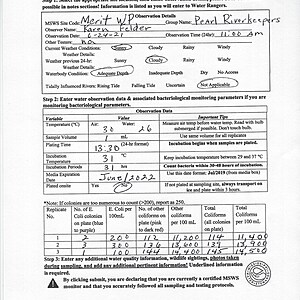 Observation Details
MSWS Site Code: Merit WP Group Name: Pearl Riverkeepers
Observer Name: Karen Felder
Observation Date: 6-24-21 Observation Time (24hr): 11:00 AM
Other Testers: na
Current Weather Conditions: Sunny Cloudy Rainy Windy
Weather Details:
Weather previous 24-hr: Sunny Cloudy Rainy Windy
Weather Details:
Waterbody Condition: Adequate Depth Inadequate Depth Dry No Access
Tidally Influenced Rivers: Rising Tide Falling Tide
Step 2: Enter water observation data & associated bacteriological monitoring parameters if you are monitoring bacteriological parameters.
Observation Data
Variable Value Important Tips
Temperature (°C) Air: 30 Water: 26 Measure air temp before water temp. Read with bulb submerged if possible. Don't touch bulb.
Sample Volume 1 mL Use same volume for all replicates
Plating Time 13:30 (24-hr format) Incubation begins when samples are plated.
Incubation Temperature 31 °C Keep incubation temperature between 29 and 37 °C
Incubation Periods 31 hrs Count bacteria within 30-48 hours of incubation.
Media Expiration Date June/2022 Use this date format: Jul/2019 (from media box)
Plated onsite Yes No If not plated at sampling site, always transport on ice and plate within 3 hours.
*Note: If colonies are too numerous to count (>200), report as 250.
Replicate No. No. of E. Coli colonies on plate (blue to purple) E. Coli per 100mL No. of other coliforms on plate (pink to dark red) Other coliforms per 100 mL Total Coliforms (all colonies on plate) Total coliforms per 100 mL
1 2 200 112 11,200 114 11,400
2 3 300 136 13,600 139 13,900
3 1 100 144 14,400 145 14,500
Step 3: Enter any additional water quality information, wildlife sightings, photos taken during sampling, and add any additional pertinent information! Underlined information is required.
By clicking submit, you are declaring that you are currently a certified MSWS monitor and that you accurately followed all sampling and testing protocols.